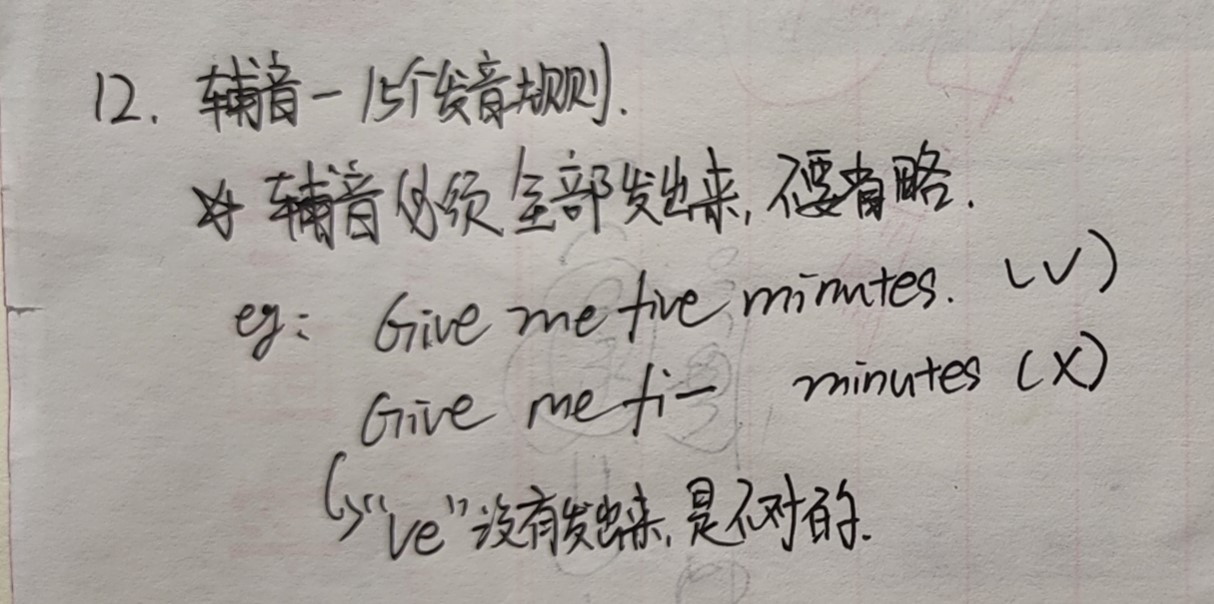 12. 辅音-15个发音规则.
☆ 辅音必须全部发出来,不要省略.
eg: Give me five minutes. (√)
Give me fi- minutes (×)
↳"ve"没有发出来,是不对的.